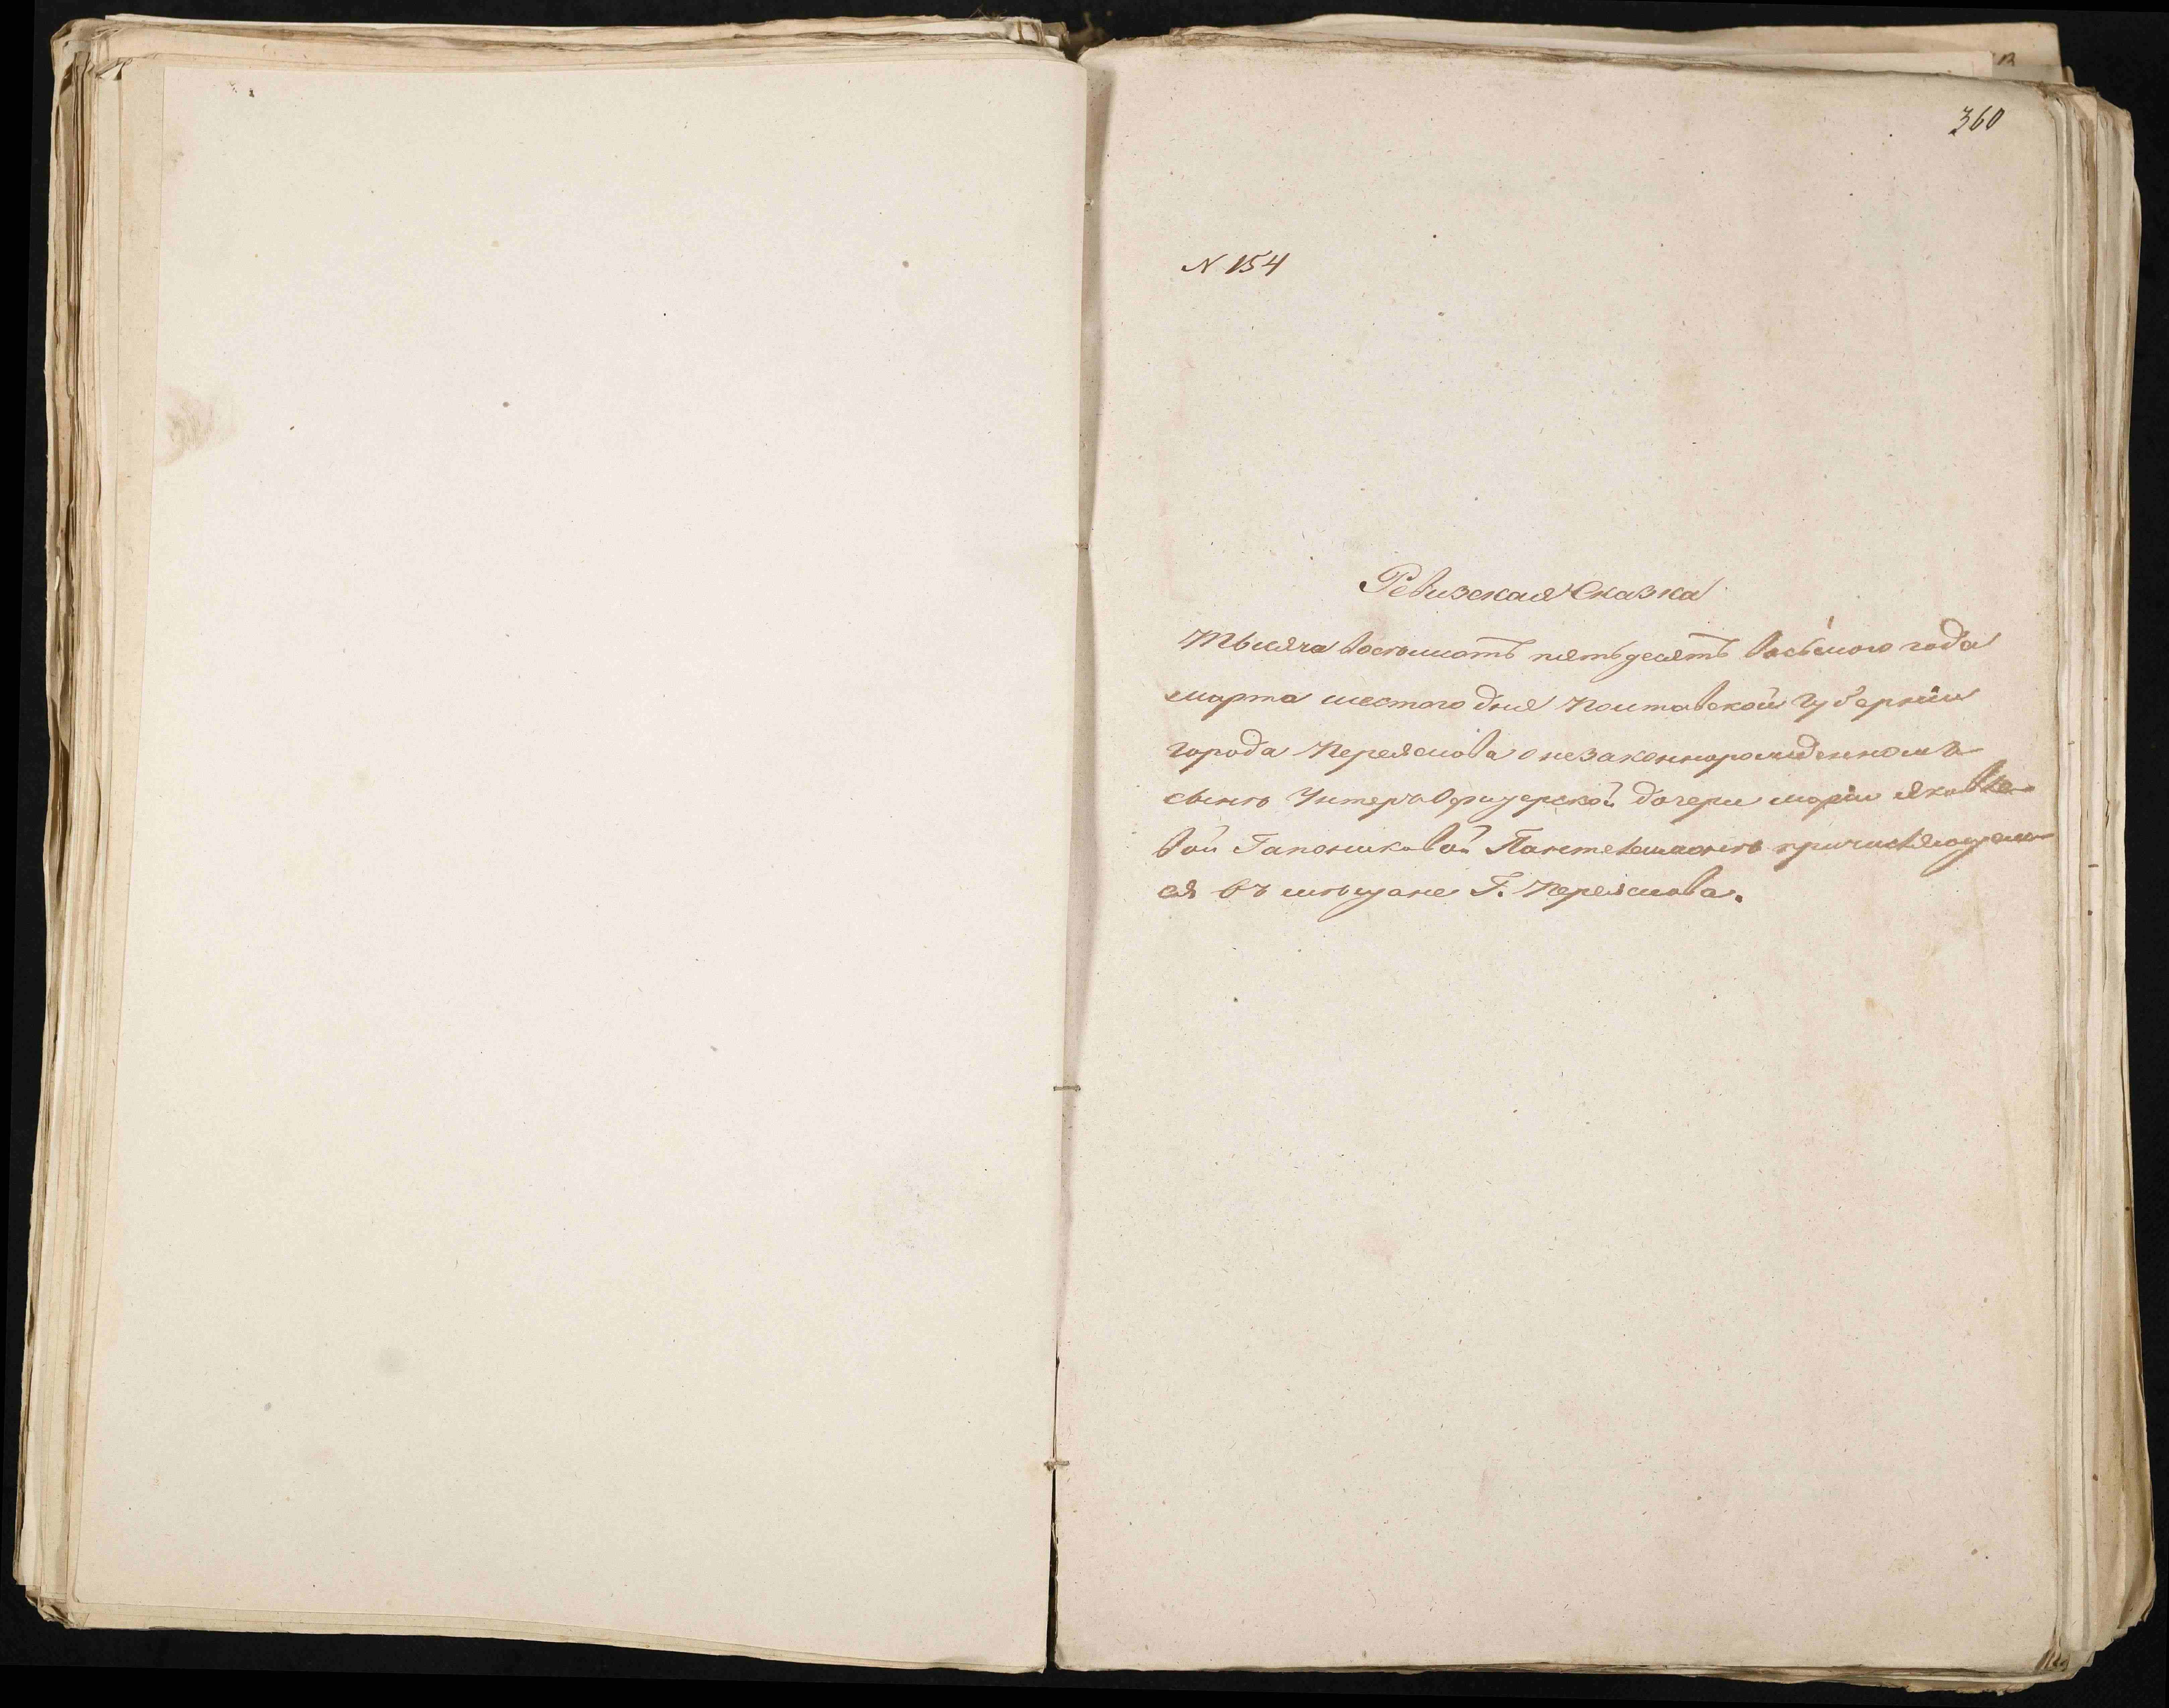 360
N 154
Ревизская Сказка
Тысяча восемсотъ пятьдесятъ восьмого года
марта шестого дня Полтавской Губерніи
города Переяслова о незаконнорожденномъ
сынѣ Унтеръ Офицерской дочери маріи яковле-
вой Гапониковой Пантелешмонѣ причисляющем-
ся въ мѣщане Г. Переяслова.